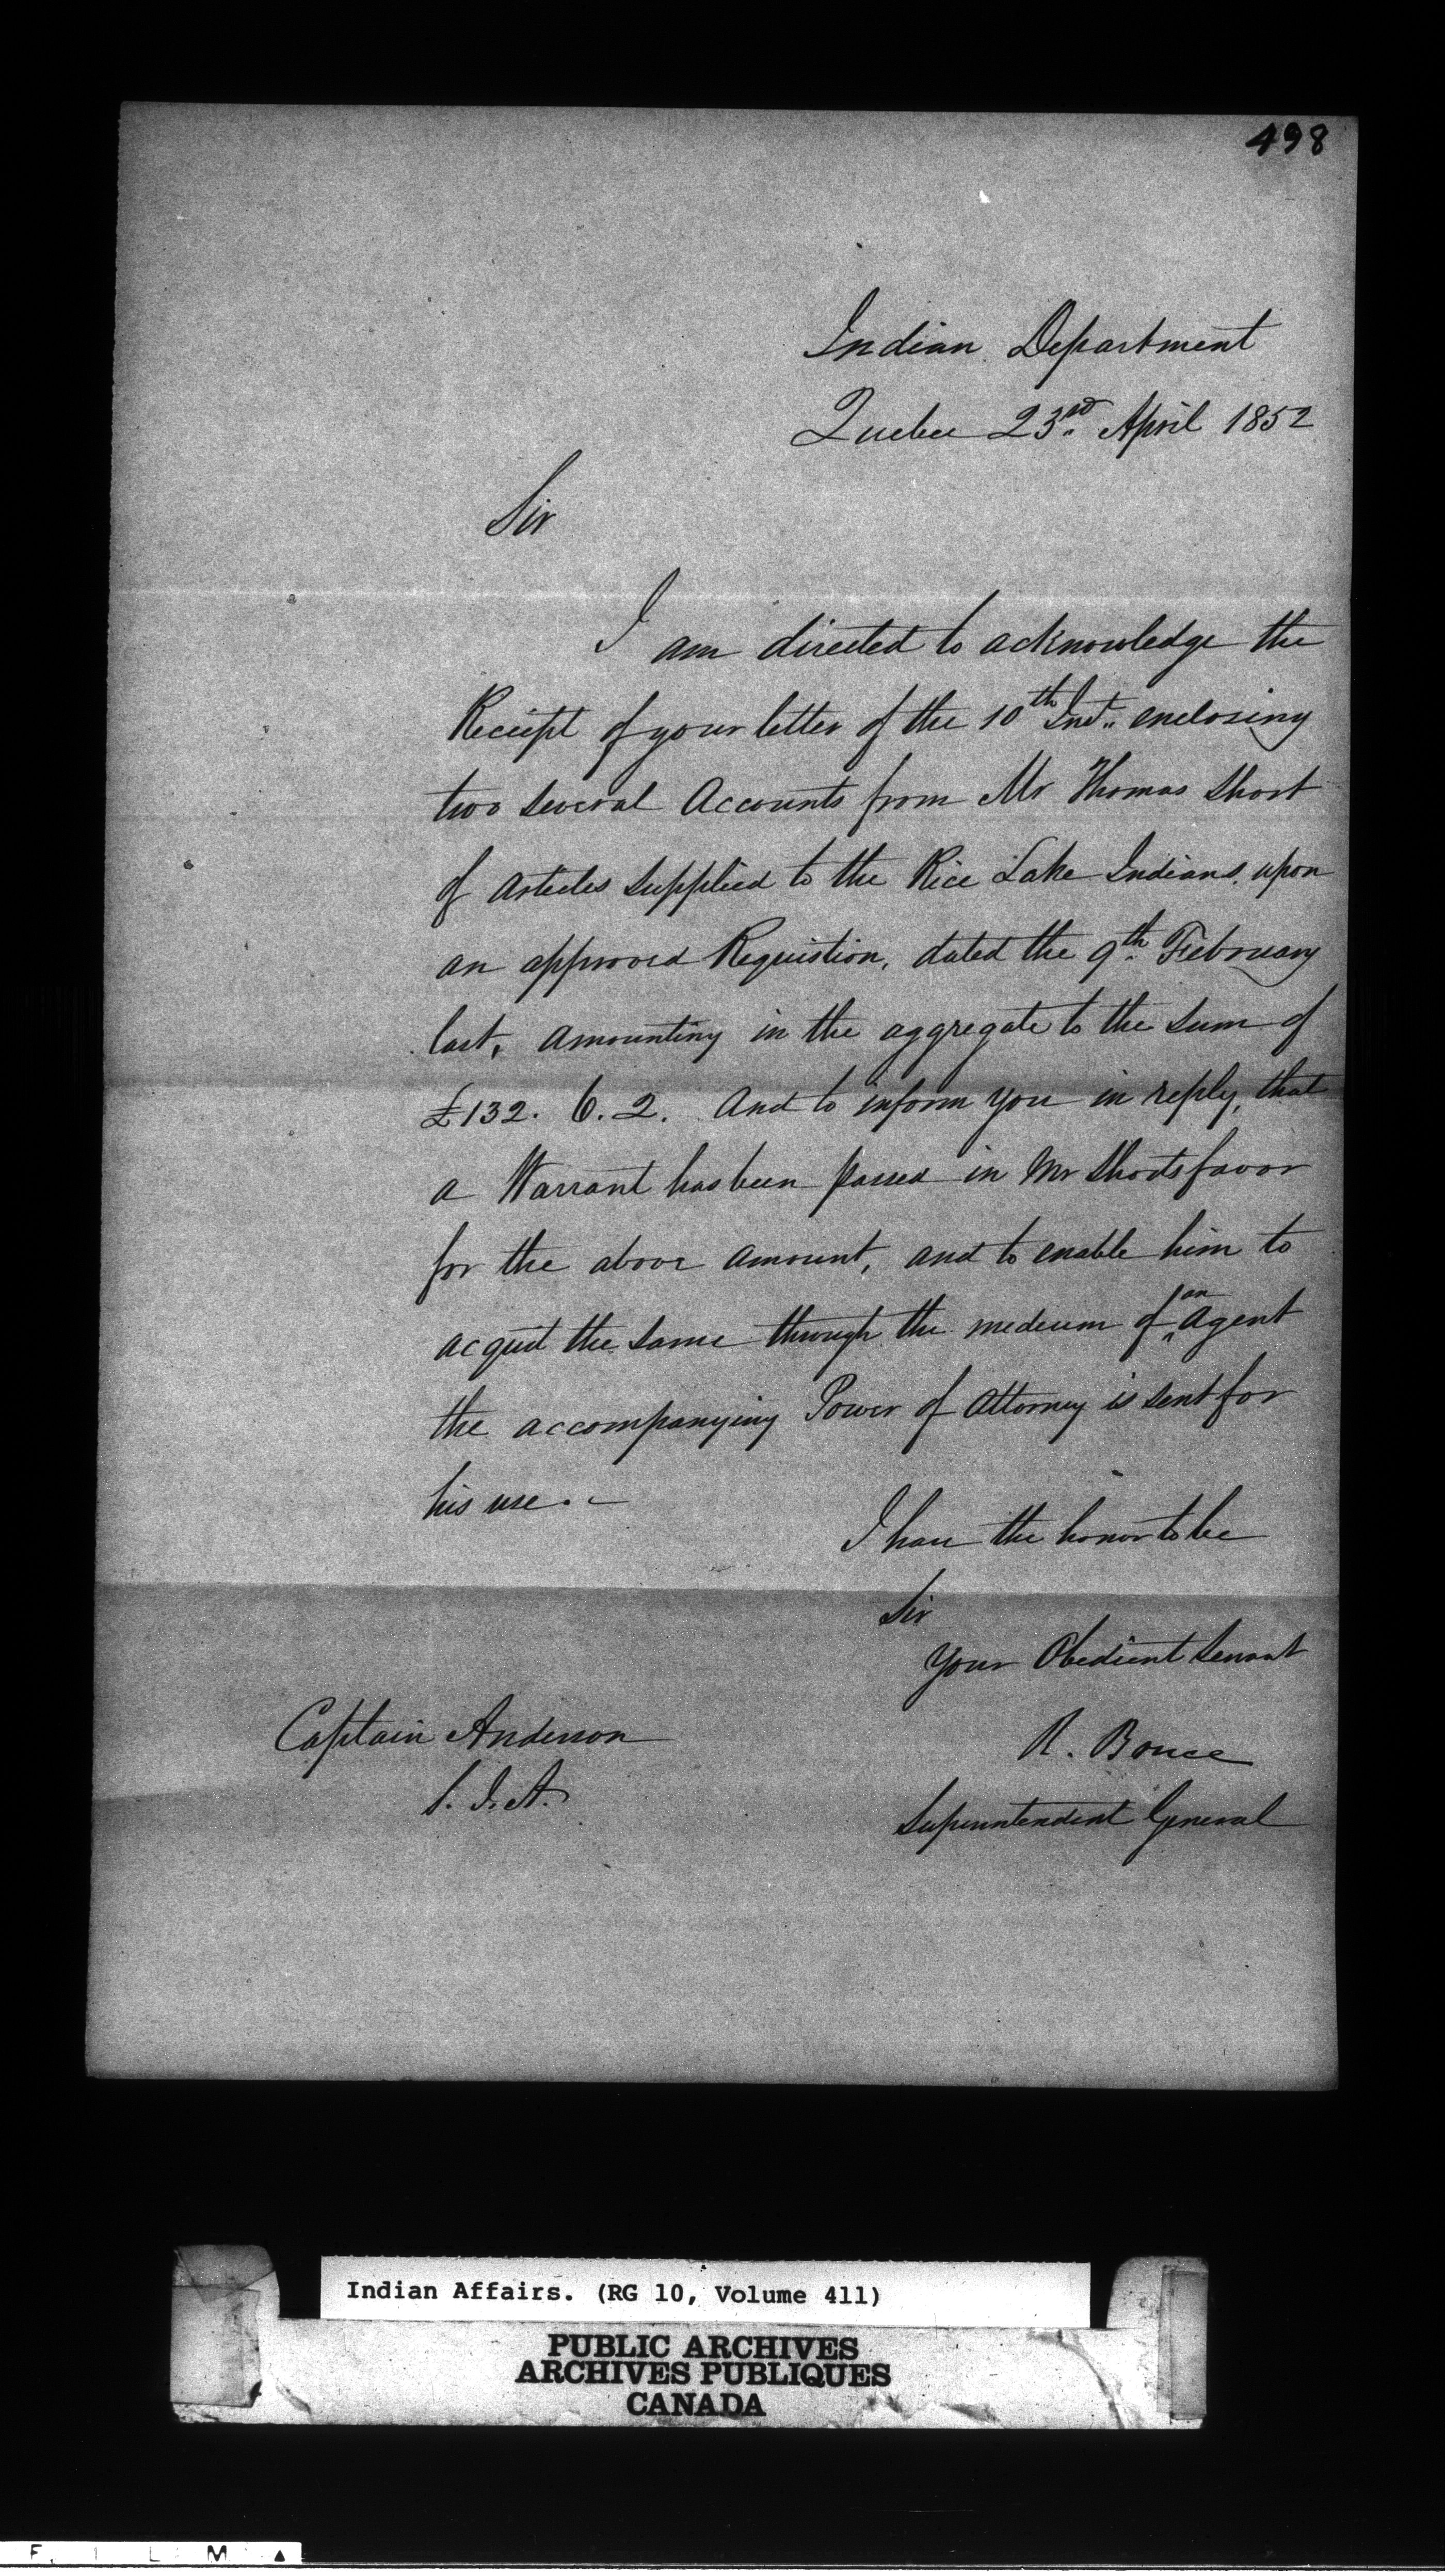 498
Indian Department
Quebec 23rd April 1852
Sir
I am directed to acknowledge the
Receipt of your letter of the 10th Inst. enclosing
two several Accounts from Mr Thomas Short
of Articles supplied to the Rice Lake Indians, upon
an approved Requistion, dated the 9th February
last, amounting in the aggregate to the sum of
£132. 6. 2. And to inform you in reply, that
a Warrant has been passed in Mr Shorts favor
for the above amount, and to enable him to
acquit the same through the medium of an Agent
the accompanying Power of Attorney is sent for
his use. -
I have the honor to be
Sir
Your Obedient Servant
R. Bruce
Superintendent General
Captain Anderson
S. I. A.
Indian Affairs. (RG 10, Volume 411)
PUBLIC ARCHIVES
ARCHIVES PUBLIQUES
CANADA
F I L M